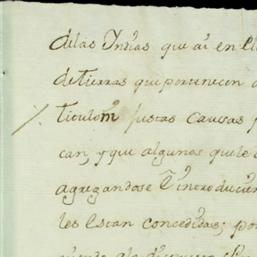 delas Indias que ai en el
de tierras que pertenecen a
ticulom justas causas p
can, y que algunos que le
agregandose E introducien
les Estan concedidas; por